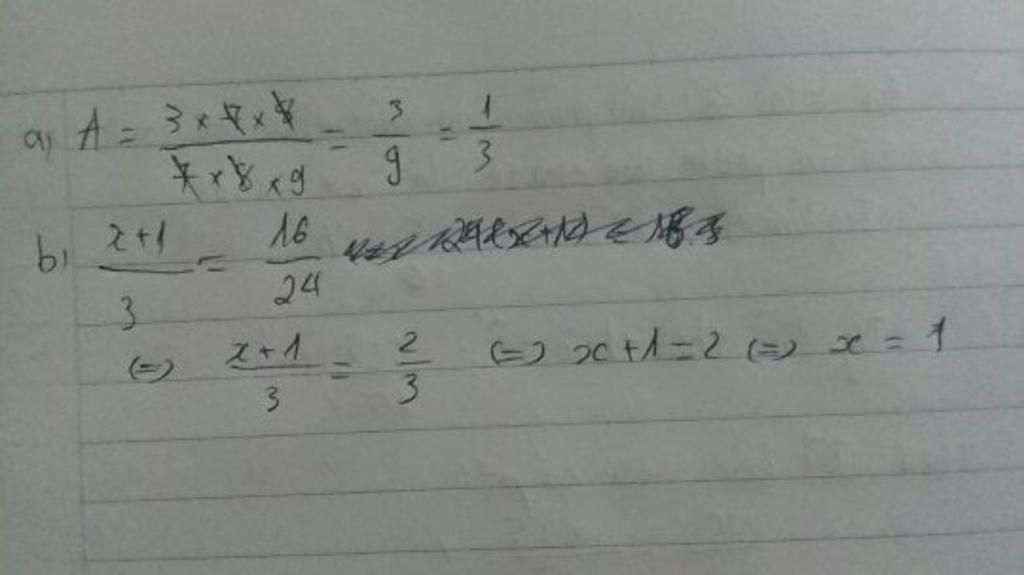 a) A = (3 × 7 × 8)/(7 × 8 × 9) = 3/9 = 1/3
b) (x+1)/3 = 16/24
(=) (x+1)/3 = 2/3 (=) x+1=2 (=) x = 1